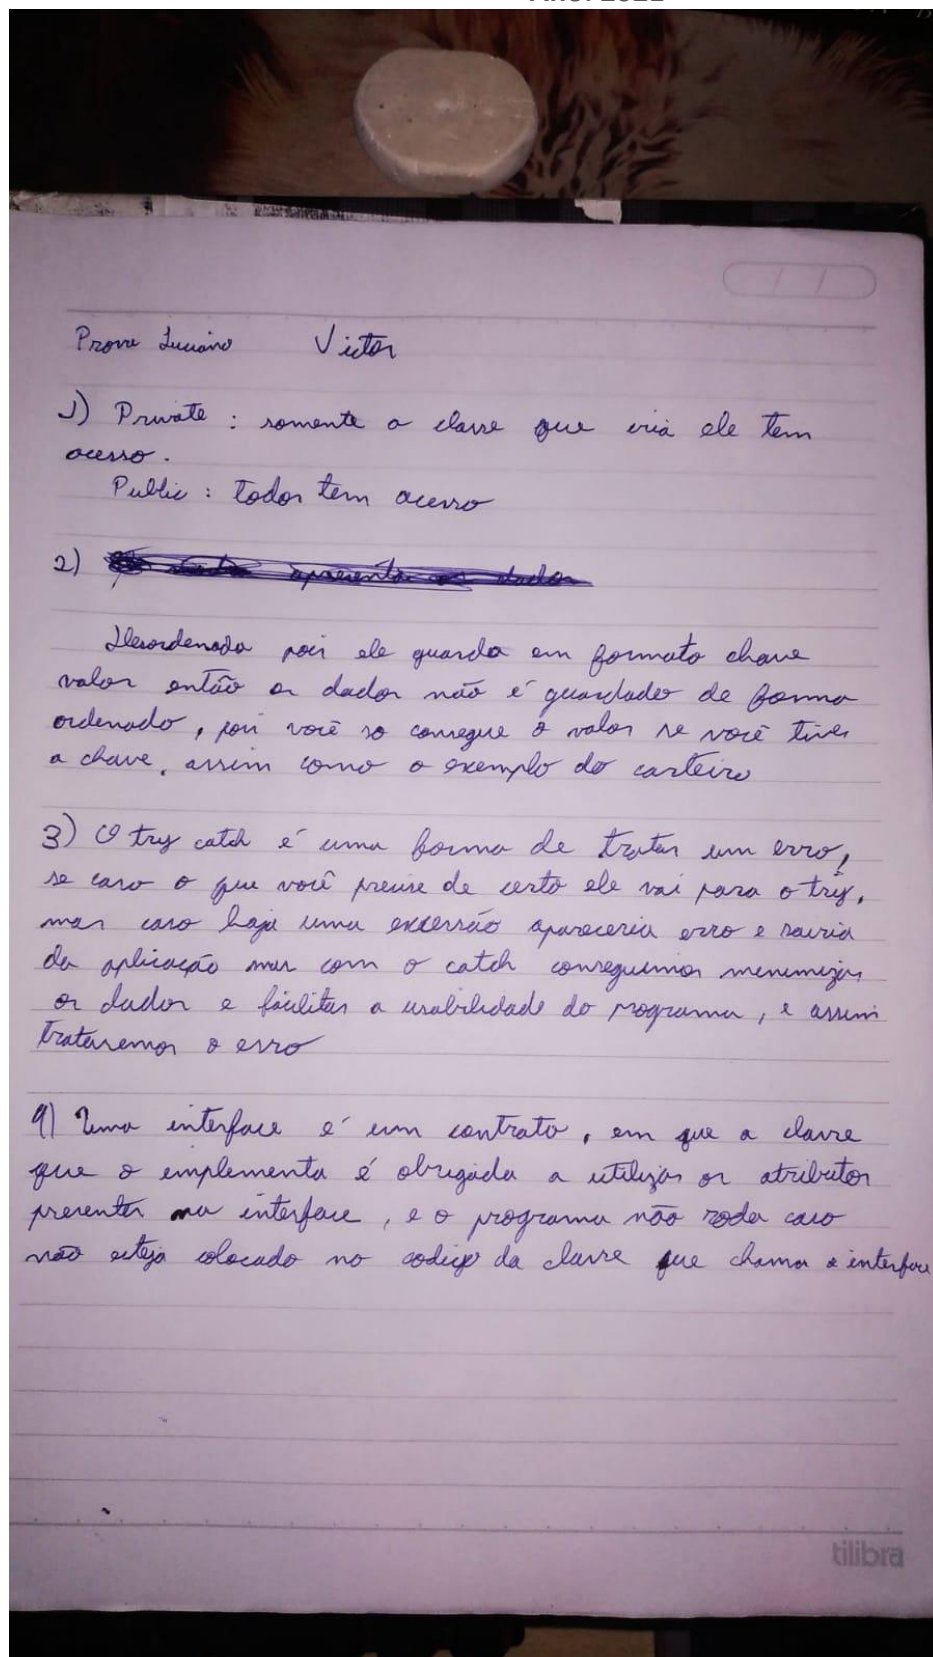 Prova Luciano Victor
1) Private : somente a classe que cria ele tem
acesso.
Public : todos tem acesso
2) apresenta os dados
Desordenada pois ele guarda em formato chave
valor então os dados não é guardados de forma
ordenado, pois você so consegue o valor se você tiver
a chave, assim como o exemplo do carteiro
3) O try catch é uma forma de tratar um erro,
se caso o que você precise de certo ele vai para o try,
mas caso haja uma excessão apareceria erro e sairia
da aplicação mas com o catch conseguimos menimizar
os dados e fácilitar a usabilidade do programa, e assim
trataremos o erro
4) Uma interface é um contrato, em que a classe
que o emplementa é obrigada a utilizar os atributos
presentes na interface, e o programa não roda caso
não esteja colocado no codigo da classe que chama a interface
tilibra